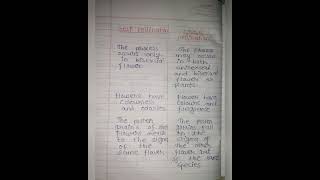 Self Pollination
The process
occurs only
in bisexual
flower
The process
may occur
in both
unisexual
and bisexual
flower or
plants
Flowers have
colourless
and odorless
Flower have
colours and
fragrance
The pollen
grains of
flowers
to the
of the
same flower
The pollen
grains fall
of the other
flower but
of the same
species